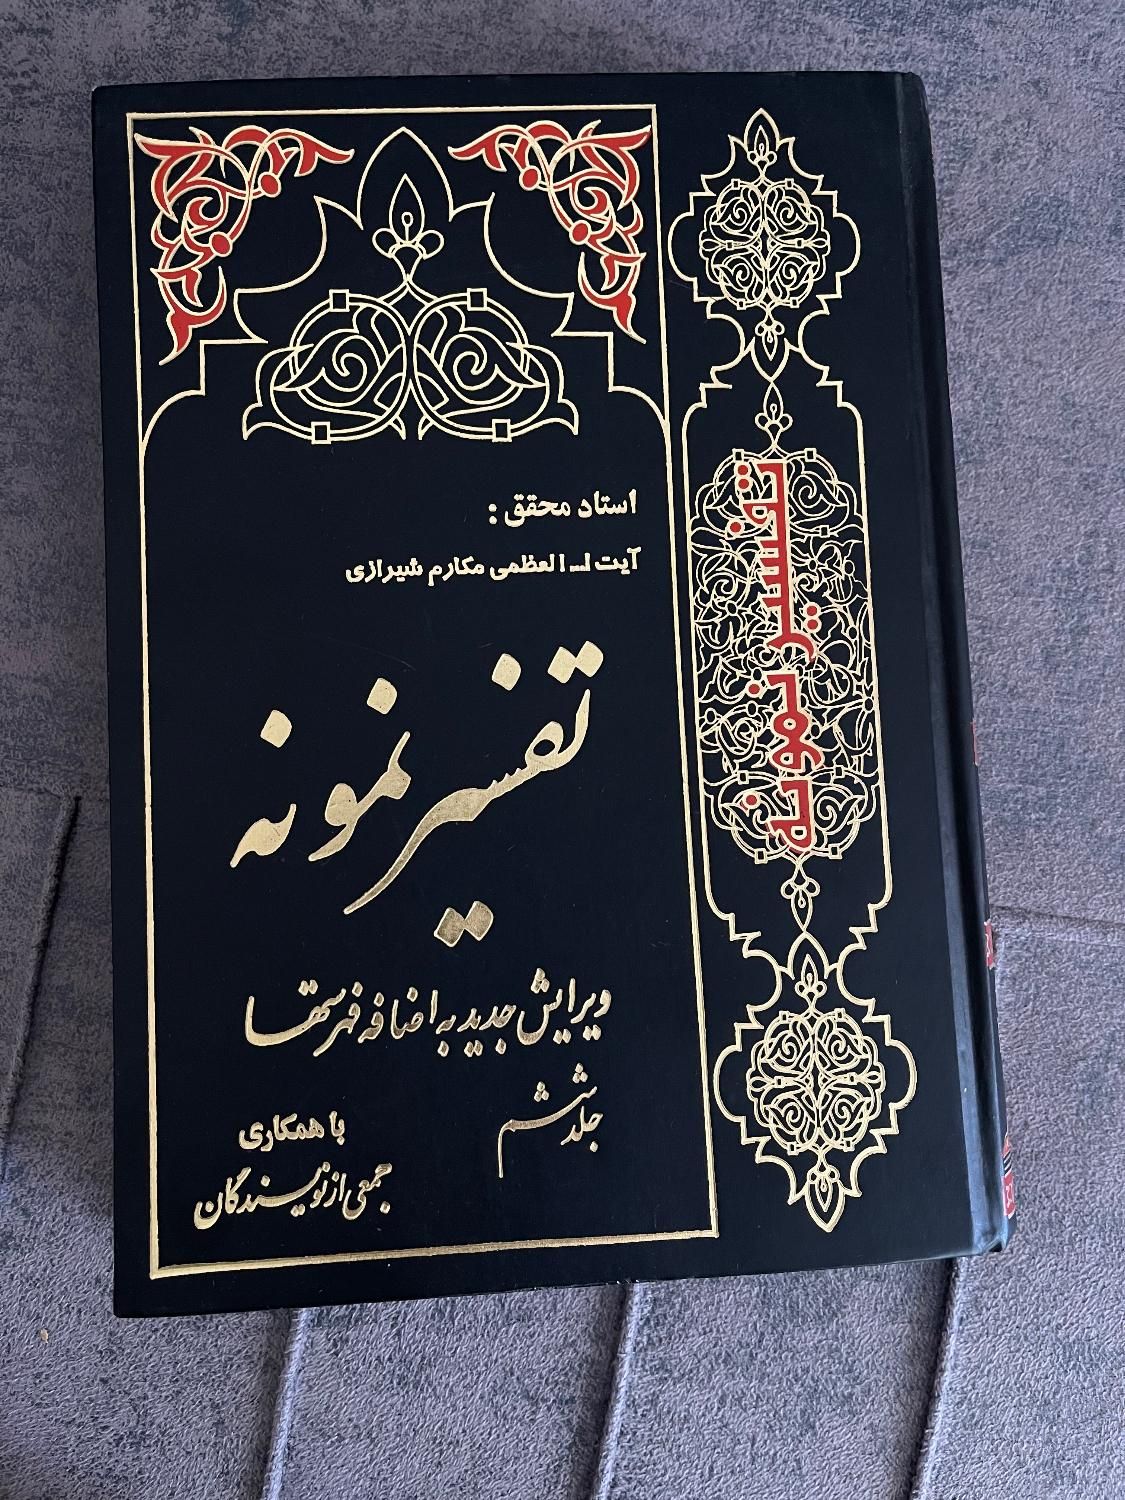 استاد محقق :
آیت ا... العظمی مکارم شیرازی
تفسیر نمونه
ویرایش جدید به اضافه فهرستها
جلد ششم
با همکاری
جمعی از نویسندگان
تفسیر نمونه